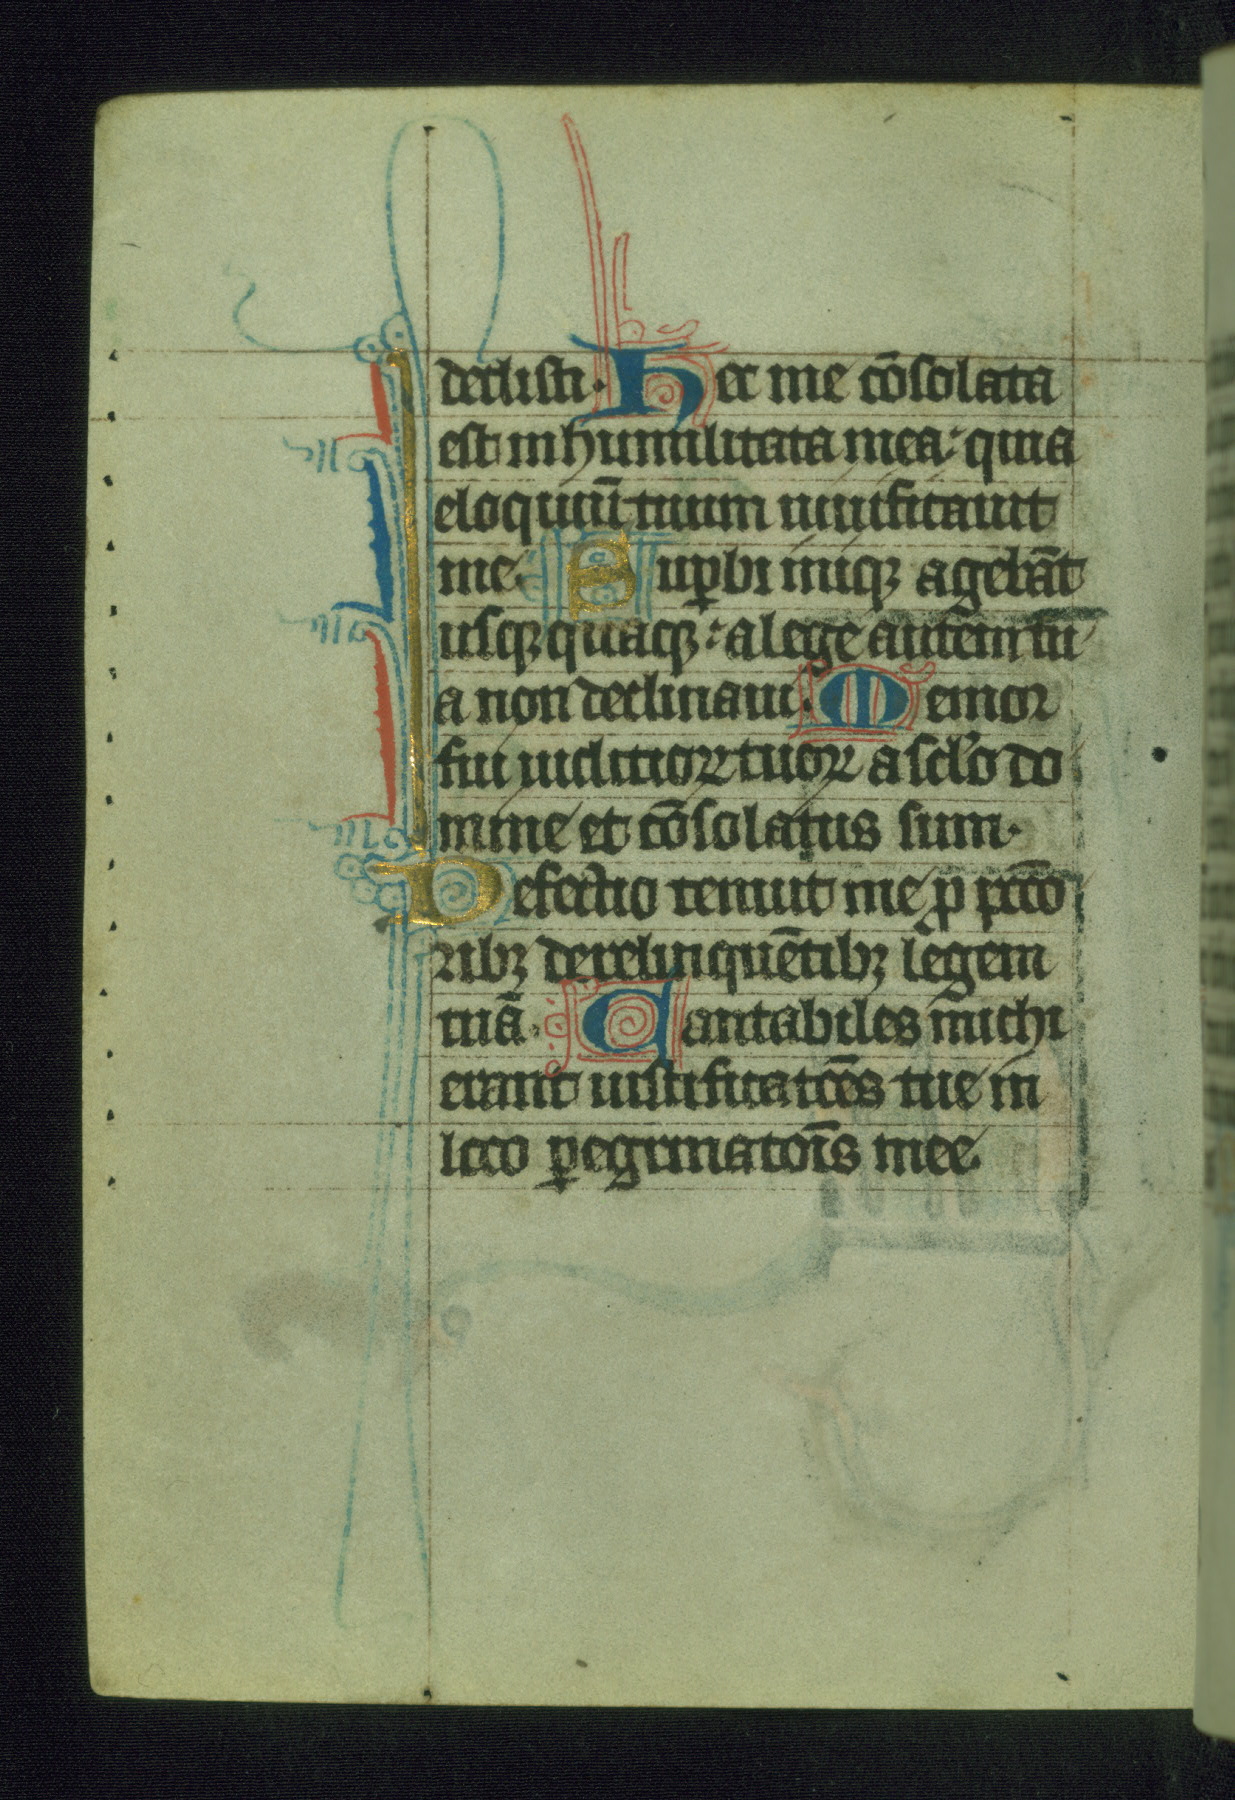 dedisti. Hec me cōsolata
est in humilitata mea: quia
eloquiū tuum uiuificauit
me. Supͥbi iniqꝫ agebāt
usqꝫquaqꝫ: a lege autem tu
a non declinaui. Memor
fui iudicioꝝ tuoꝝ a sclo do
mine et cōsolatus sum.
Defectio tenuit me ꝓ pccō
ribꝫ derelinquētibꝫ legem
tuā. Cantabiles michi
erant iustificatōēs tue in
loco ꝑegrinatoīs mee.